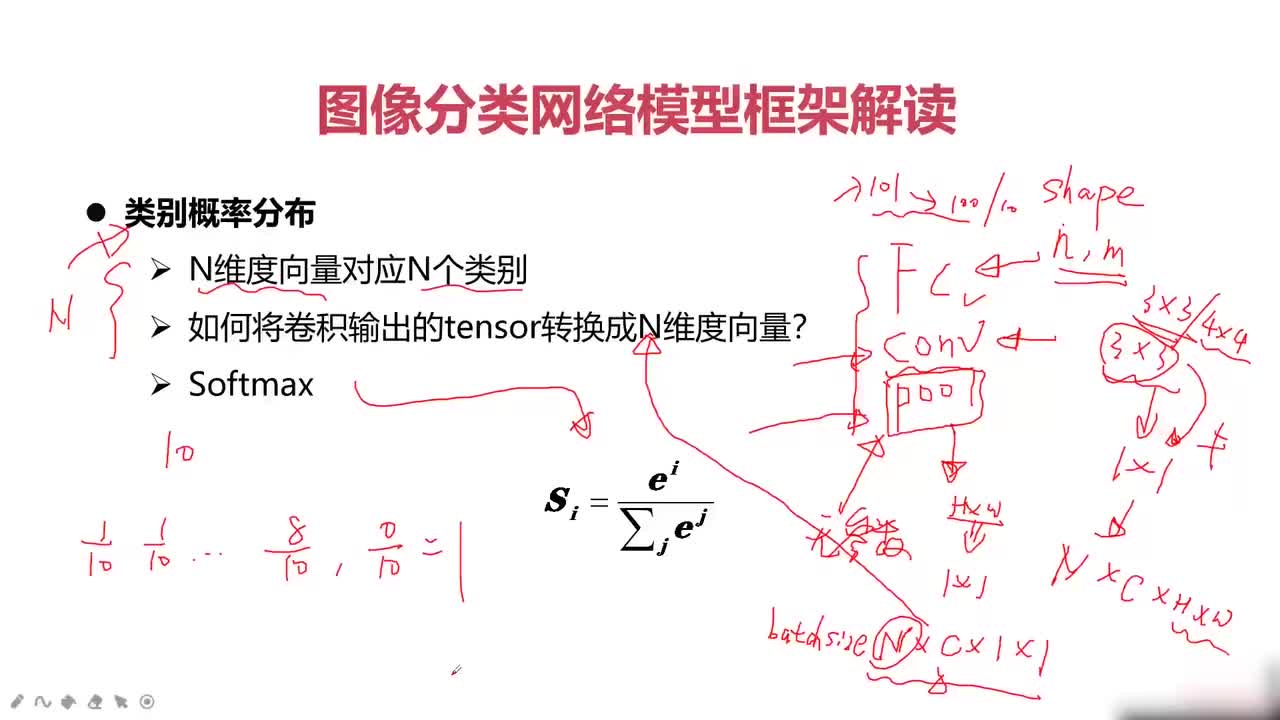 图像分类网络模型框架解读
类别概率分布
N维度向量对应N个类别
如何将卷积输出的tensor转换成N维度向量?
Softmax
S_i = e^i / ∑_j e^j
N
10
1/10 1/10 ... 8/10 , 0/10 = 1
101 → 100/10
shape
FC
n, m
conv
3×3/4×4
3×3
1×1
无参数
H×W
1×1
N×C×H×W
batchsize N×C×1×1